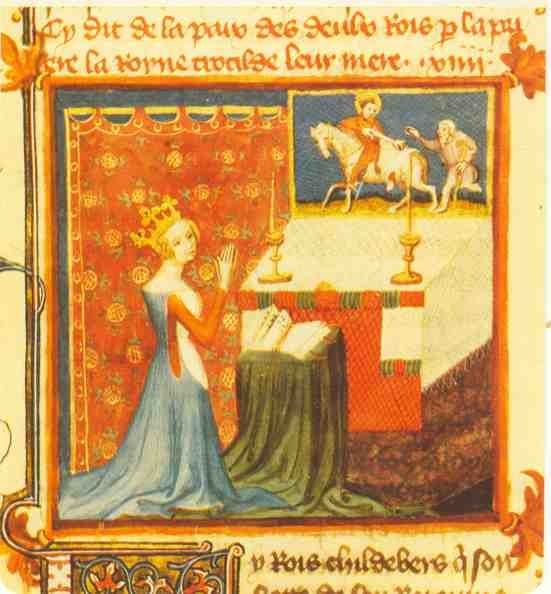 Cy dit de la paix des deulx Rois p la pri
ere la Royne crotilde leur mere. .viiii.
y Rois childebers q̃ son